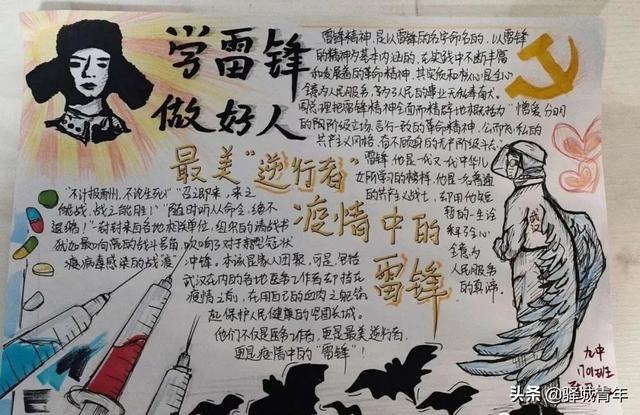 学雷锋
做好人
雷锋精神,是以雷锋的名字命名的,以雷锋
的精神为基本内涵的,在实践中不断丰富
和发展着的革命精神,其实质和核心是全心
全意为人民服务,为了人民的事业无私奉献。
周总理把雷锋精神全面而精辟地概括为“憎爱分明
的阶级立场、言行一致的革命精神、公而忘私的
共产主义风格、奋不顾身的无产阶级斗志”。
雷锋,他是一代又一代中华儿
女所学习的榜样,他是一名普通
的共产主义战士,却用他短
暂的一生诠
释了全心
全意为
人民服务
的真谛。
最美“逆行者”
疫情中的
雷锋
“不计报酬,不论生死!”召之即来,来之
能战,战之能胜!”“随时听从命令,绝不
退缩!”一封封来自各地
战斗号角,吹响了对新型冠状
病毒感染的战“疫”冲锋。本该是家人团聚,可是,包括
武汉在内的各地医务工作者却挡在
疫情之前,在用自己的血肉之躯筑
起保护人民健康的坚固长城。
他们不仅是医务工作者,更是最美逆行者,
更是疫情中的“雷锋”!
武汉
九中
1701班
头条@驿城青年